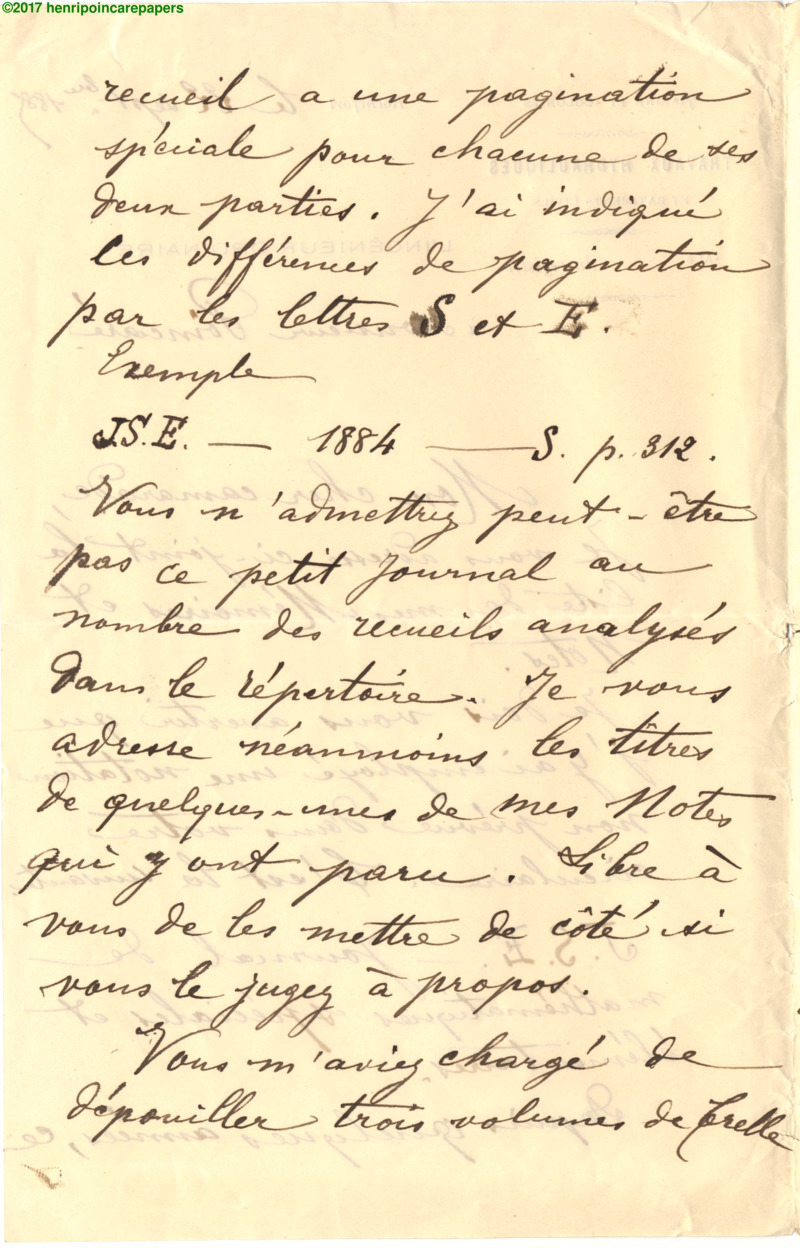 ©2017 henripoincarepapers
recueil a une pagination
spéciale pour chacune de ses
deux parties. J'ai indiqué
les différences de pagination
par les lettres S et E.
Exemple
J.S.E. — 1884 — S. p. 312.
Vous n'admettrez peut-être
pas ce petit Journal au
nombre des recueils analysés
dans le répertoire. Je vous
adresse néanmoins les titres
de quelques-unes de mes Notes
qui y ont paru. Libre à
vous de les mettre de côté si
vous le jugez à propos.
Vous m'aviez chargé de
dépouiller trois volumes de Crelle